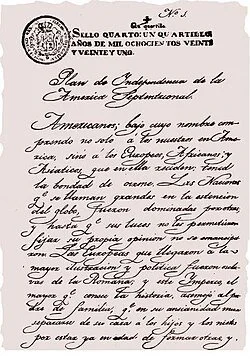 Nº 1.
Un quartillo
SELLO QUARTO: UN QUARTILLO
AÑOS DE MIL OCHOCIENTOS VEINTE
Y VEINTE Y UNO.
Plan de Independencia de la
America Septentrional.
Americanos; bajo cuyo nombre com
prendo no solo á los nacidos en Ame
rica, sino á los Europeos, Africanos, y
Asiaticos, que en ella reciden, tened
la bondad de oirme. Las Naciones
qe. se llaman grandes en la estension
del globo, fueron dominadas por otras
y hasta qe. sus luces no les permitieron
fijar su propia opinion no se emancipa
ron. Las Europeas que llegaron á la
mayor ilustracion y politica fueron escla
vas de la Romana; y este Imperio, el
mayor qe. conoce la historia, asemejó al pa
dre de familias, qe. en su ancianidad mira
separarse de su casa á los hijos y los nietos
por estar ya en edad de formar otras, y